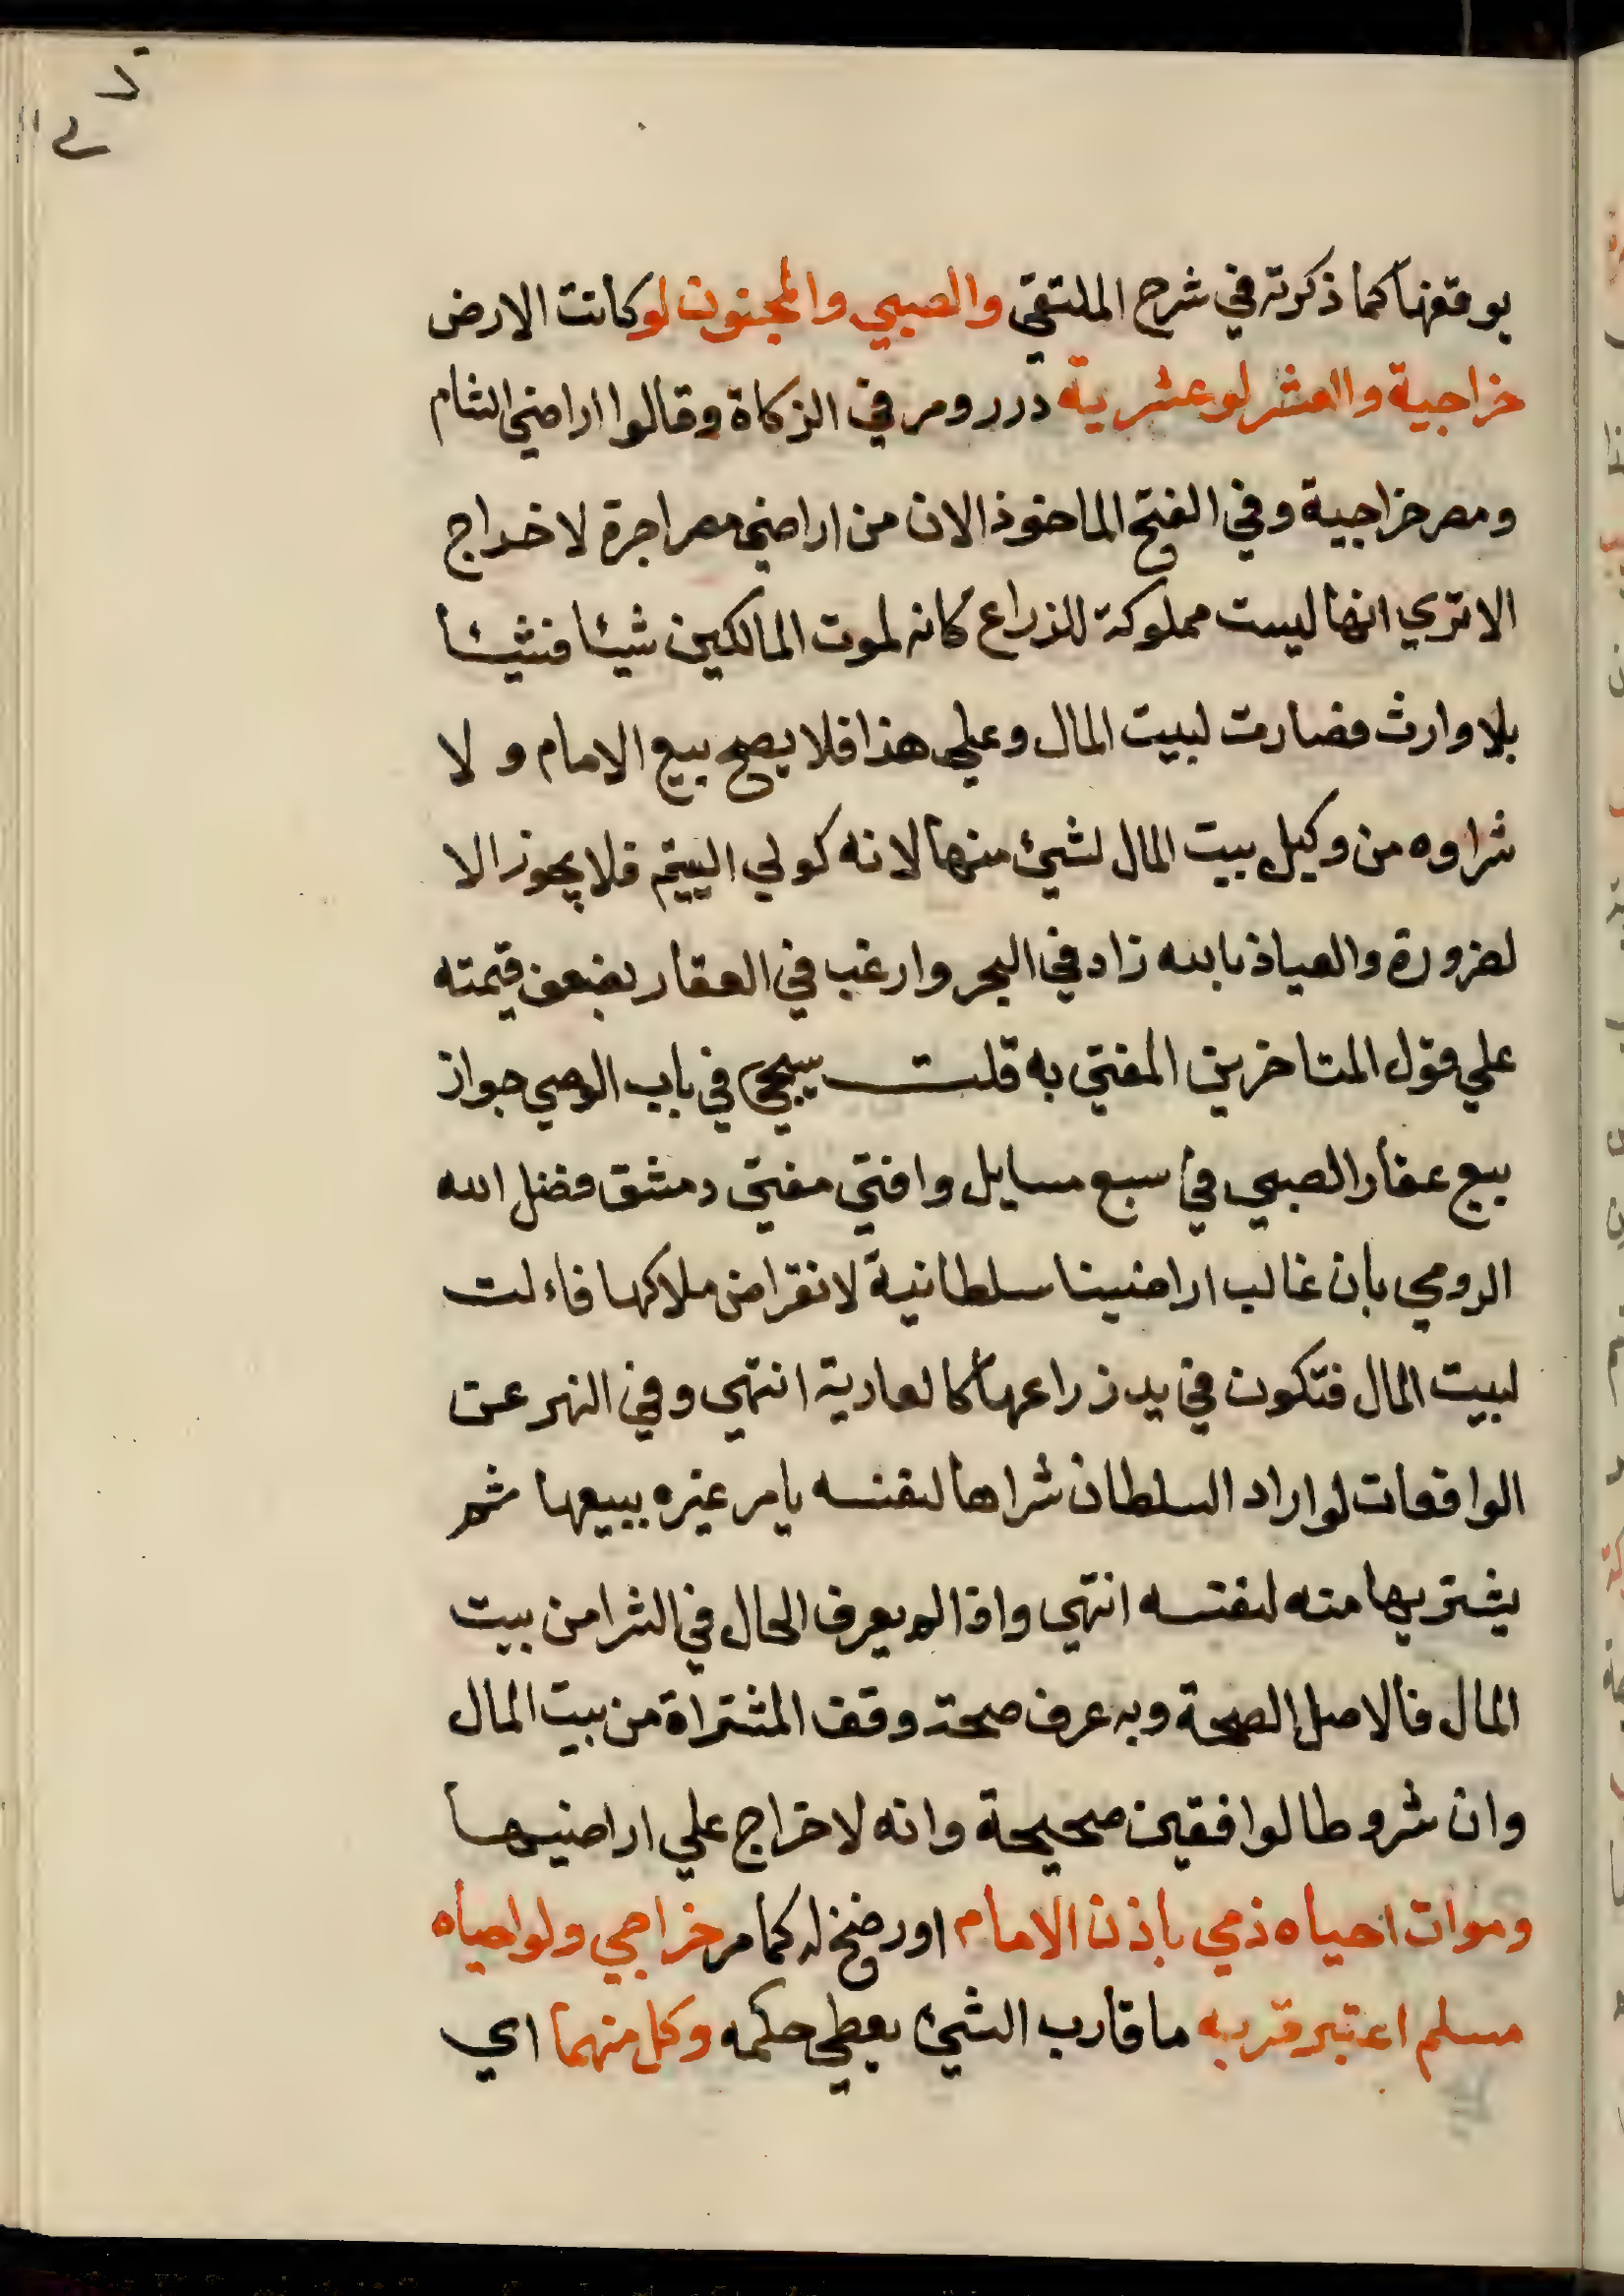 بوقفها كما ذكرته في شرح الملتقى والصبي والمجنون لو كانت الارض
خراجية والعشر لو عشرية درر ومر في الزكاة وقالوا اراضي الشام
ومصر خراجية وفي الفتح الماخوذ الان من اراضي مصر اجرة لا خراج
الا تري انها ليست مملوكة للزراع كانه لموت المالكين شيئا فشيئا
بلا وارث فصارت لبيت المال وعلى هذا فلا يصح بيع الامام ولا
شراوه من وكيل بيت المال لشيئ منها لانه كولي اليتيم فلا يجوز الا
لضرورة والعياذ بالله زاد في البحر وارغب في العقار بضعف قيمته
علي قول المتاخرين المفتى به قلت سيجئ في باب الوصي جواز
بيع عقار الصبي في سبع مسايل وافتي مفتي دمشق فضل الله
الرومي بان غالب اراضينا سلطانية لانقراض ملاكها فاءلت
لبيت المال فتكون في يد زراعها كالعارية انتهى وفي النهر عن
الواقعات لو اراد السلطان شراها لنفسه يامر غيره ببيعها ثم
يشتريها منه لنفسه انتهى واذا لم يعرف الحال في الشرا من بيت
المال فالاصل الصحة وبه عرف صحة وقف المشتراة من بيت المال
وان شروط الواقفين صحيحة وانه لا خراج علي اراضيها
وموات احياه ذمي باذن الامام او رضخ له كما مر خراجي ولو احياه
مسلم اعتبر قربه ما قارب الشيئ يعطى حكمه وكل منهما اي